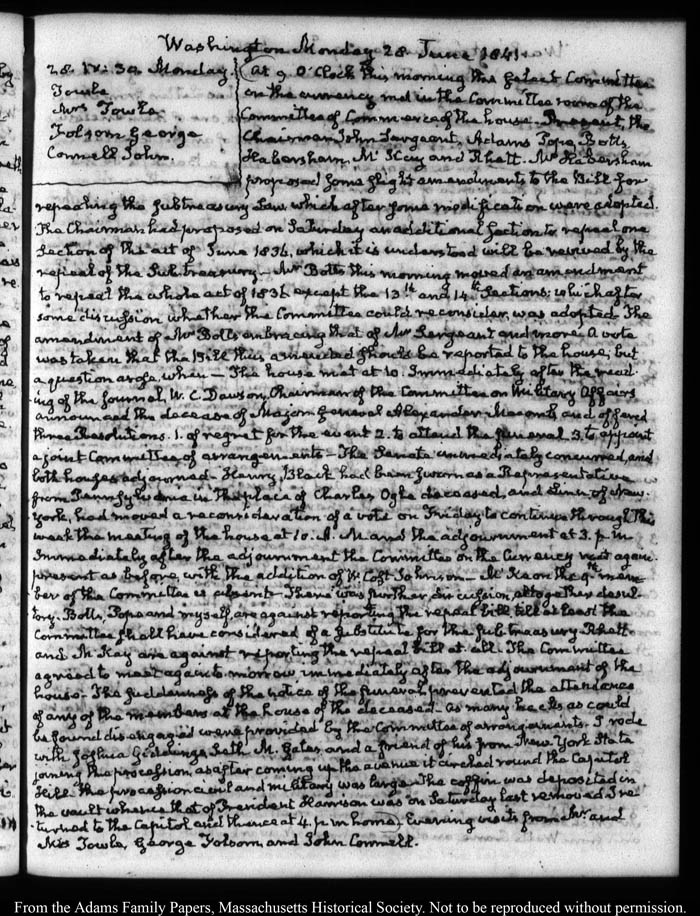 Washington Monday 28 June 1841.
28. IV: 30. Monday.
Towle
Mrs Towle
Folsom George
Connell John.
At 9. O'Clock this morning the Select Committee
on the currency met in the Committee room of the
Committee of Commerce of the house. Present, the
Chairman John Sargeant, Adams Pope, Botts,
Habersham, Mc Kay and Rhett. Mr Habersham
proposed some slight amendments to the Bill for
repealing the Subtreasury Law, which after some modification were adopted.
The Chairman had proposed on Saturday an additional section to repeal one
Section of the act of June 1836, which it is understood will be revived by the
repeal of the Sub-treasury— Mr Botts this morning moved an amendment
to repeal the whole act of 1836 except the 13th and 14th Sections, which after
some discussion whether the Committee could reconsider, was adopted. The
amendment of Mr Botts embracing that of Mr Sergeant and more. A vote
was taken that the Bill thus amended should be reported to the house; but
a question arose, when— The house met at 10. Immediately after the read-
ing of the Journal, W. C. Dawson, Chairman of the Committee on Military Affairs
announced the decease of Major General Alexander Macomb, and offered
three Resolutions. 1. of regret for the event 2. to attend the funeral 3. to appoint
a joint Committee of arrangements— The Senate immediately concurred, and
both houses adjourned— Henry Black had been sworn as a Representative
from Pennsylvania in the place of Charles Ogle deceased, and Linn of New-
York, had moved a reconsideration of a vote on Friday to continue through this
week the meeting of the house at 10. A. M and the adjournment at 3. p. m
Immediately after the adjournment the Committee on the Currency met again.
present as before, with the addition of Wm Cost Johnson— the 9th mem-
ber of the Committee is absent— There was further discussion, altogether desul-
tory. Botts, Pope and myself, are against reporting the repeal bill till at least the
Committee shall have considered of a substitute for the Subtreasury. Rhett
and Mc Kay are against reporting the repeal bill at all. The Committee
agreed to meet again to morrow immediately after the adjournment of the
house. The suddenness of the notice of the funeral, prevented the attendance
of any of the members at the house of the deceased. As many hacks as could
be found disengaged were provided by the Committee of arrangements. I rode
with Joshua Giddings, Seth M. Gates, and a friend of his from New York State
joining the procession, as after coming up the avenue it circled round the Capitol
Hill. The procession civil and military was large. The coffin was deposited in
the vault whence that of President Harrison was on Saturday last removed. I re-
turned to the Capitol and thence at 4. p. m home, Evening visits from Mr. and
Mrs Towle, George Folsom, and John Connell.
From the Adams Family Papers, Massachusetts Historical Society. Not to be reproduced without permission.